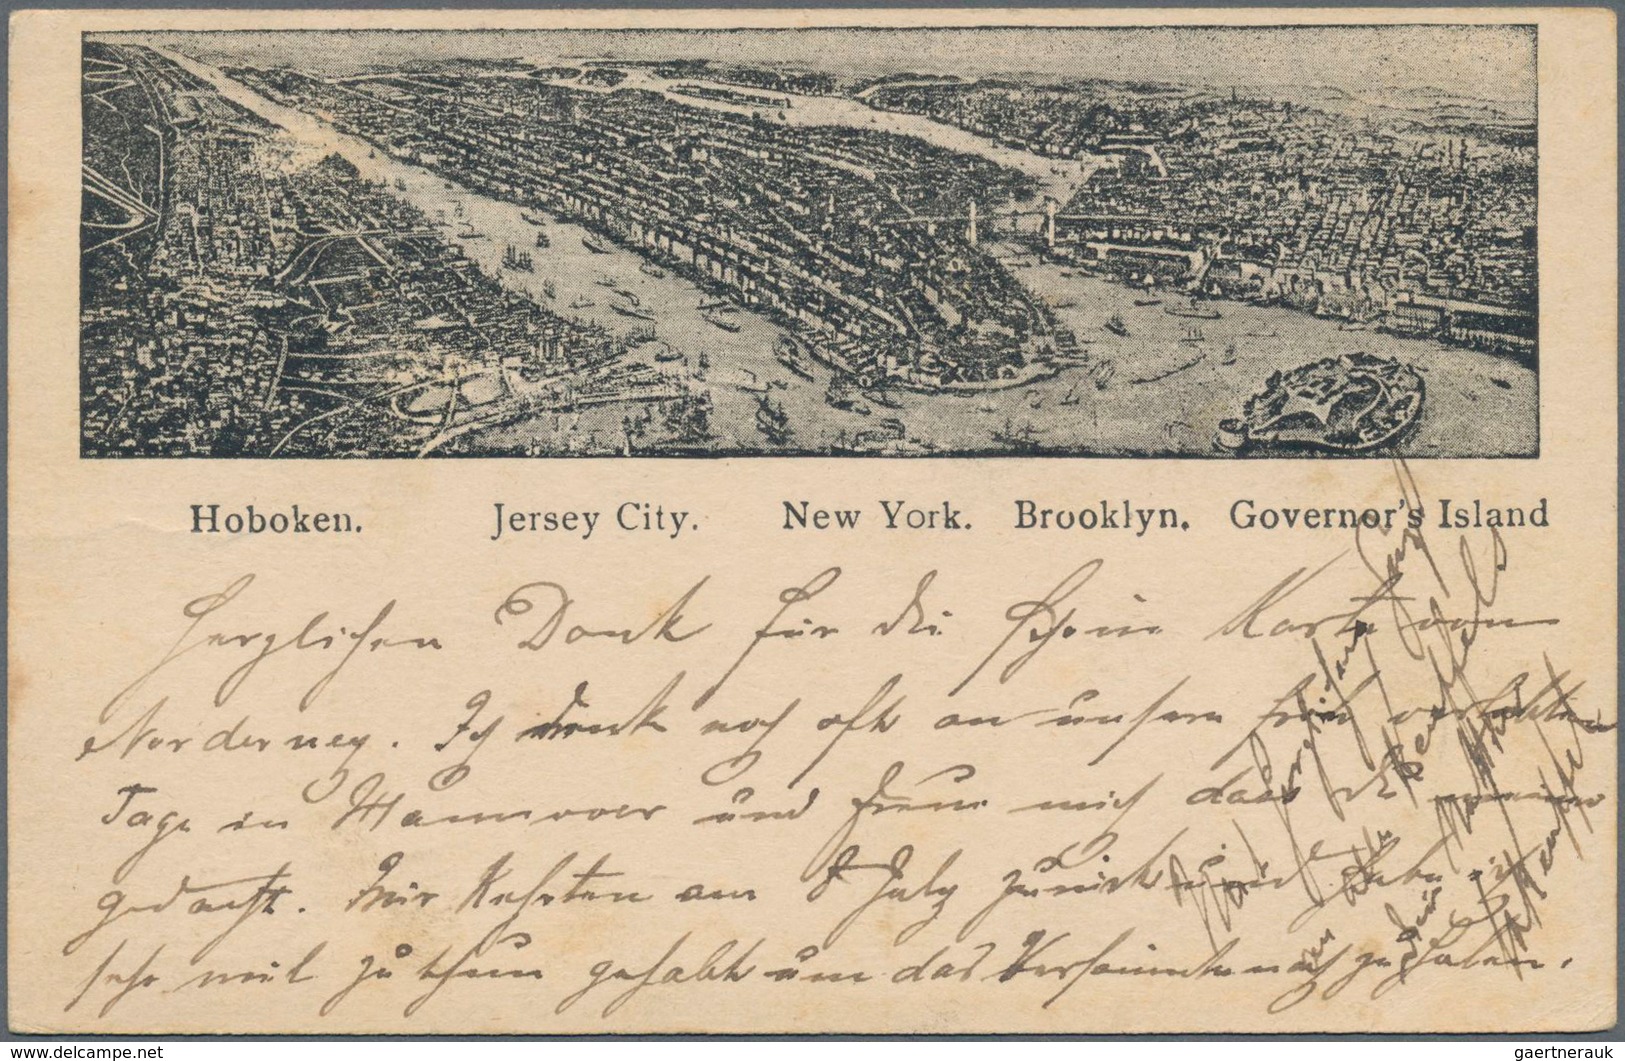 Hoboken. Jersey City. New York. Brooklyn. Governor's Island
Herzlichen Dank für die schöne Karte vom
Norderney. Ich denk noch oft an unsere froh verlebten
Tage in Hannover und freue mich dass du meiner
gedacht. Wir kehrten am 8 July zurück und habe ich
sehr viel zu thun gehabt um das Versäumte nach zu holen.
delcampe.net
gaertnerauk